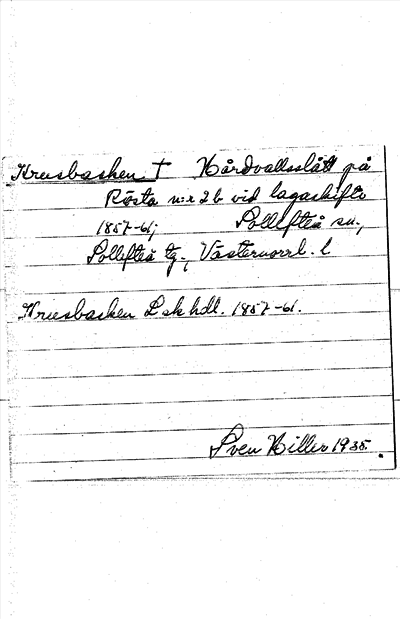 Krusbacken † Hårdvallsslått på
Rösta n:r 2 b vid lagaskifte
1857-61; Sollefteå sn.,
Sollefteå tg., Västernorrl. l.
Krusbacken L sk hdl. 1857-61.
Sven Hiller 1935.